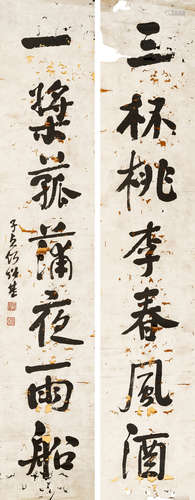 三杯桃李春風酒
一槳菰蒲夜雨船
子貞何紹基